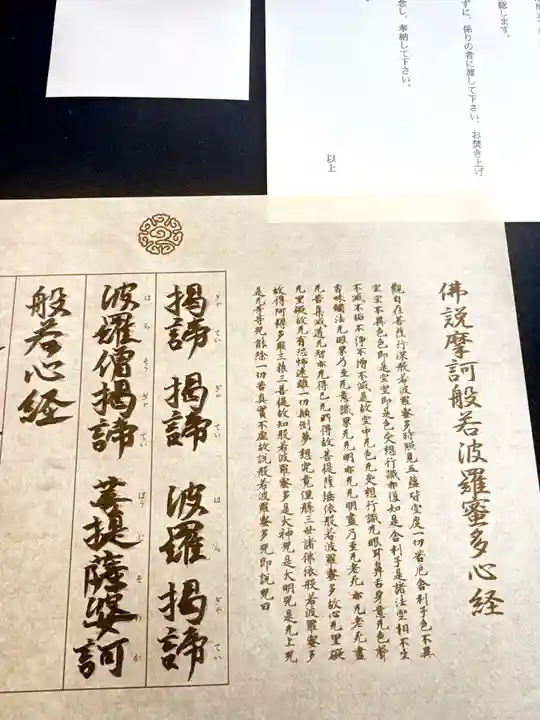 認します。
ずに、係りの者に渡して下さい、お焚き上げ
念し、奉納して下さい。
以上
佛説摩訶般若波羅蜜多心経
觀自在菩薩行深般若波羅蜜多時照見五蘊皆空度一切苦厄舎利子色不異
空空不異色色即是空空即是色受想行識亦復如是舎利子是諸法空相不生
不滅不垢不浄不増不減是故空中无色无受想行識无眼耳鼻舌身意无色聲
香味觸法无眼界乃至无意識界无无明亦无无明盡乃至无老死亦无老死盡
无苦集滅道无智亦无得已无所得故菩提薩埵依般若波羅蜜多故心无罣礙
无罣礙故无有恐怖遠離一切顛倒夢想究竟涅槃三世諸佛依般若波羅蜜多
故得阿耨多羅三藐三菩提故知般若波羅蜜多是大神咒是大明咒是无上咒
是无等等咒能除一切苦真實不虚故説般若波羅蜜多咒即説咒曰
揭諦 揭諦 波羅揭諦
ぎゃ てい ぎゃ てい は ら ぎゃ てい
波羅僧揭諦 菩提薩婆訶
は ら そう ぎゃ てい ぼう じ そ わ か
般若心経